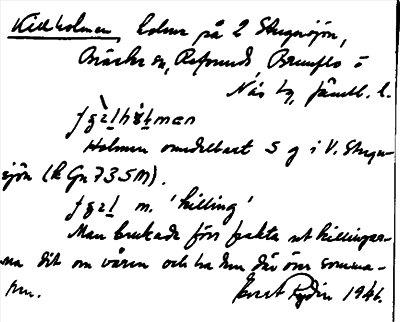 Killholmen holme på 2 Stugusjön,
Bräcke sn, Refsunds Brunflo o
Näs tg, Jämtl. l.
Holmen omedelbart S g i V. Stugu-
sjön (k Gn 735M).
m. 'killing'
Man brukade förr frakta ut killingar-
na dit om våren och ha dem där över somma-
ren. Evert Rydin 1946.